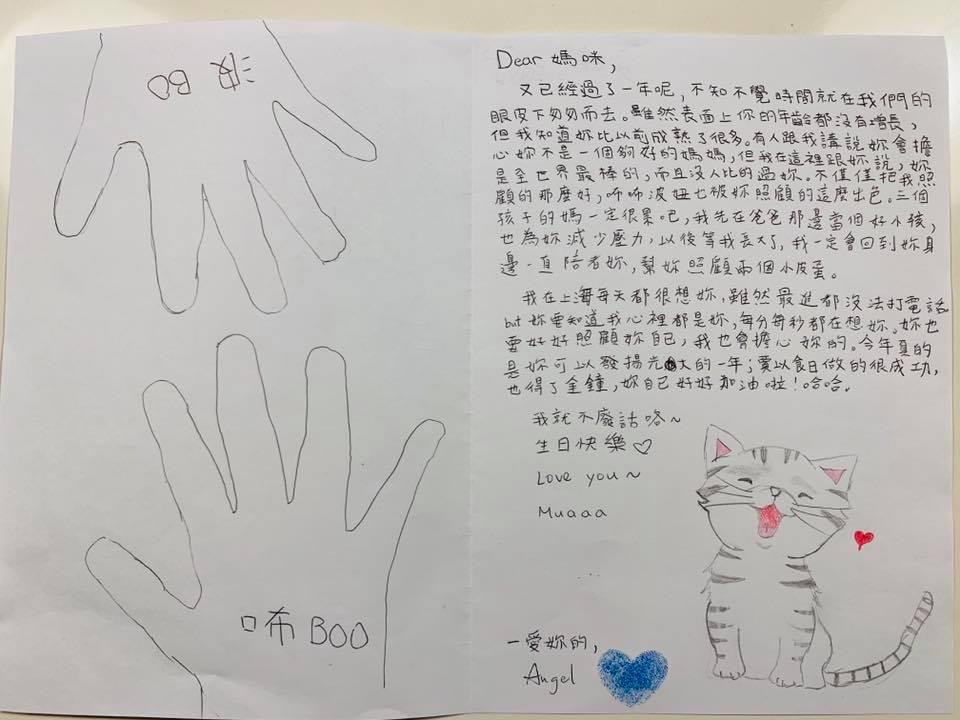 波 BO
咘 BOO
Dear 媽咪,
又已經過了一年呢，不知不覺時間就在我們的
眼皮下匆匆而去。雖然表面上你的年齡都沒有增長，
但我知道妳比以前成熟了很多。有人跟我講說妳會擔
心妳不是一個夠好的媽媽，但我在這裡跟妳說，妳
是全世界最棒的，而且沒人比的過妳。不僅僅把我照
顧的那麼好，咘咘波妞也被妳照顧的這麼出色。三個
孩子的媽一定很累吧，我先在爸爸那邊當個好小孩，
也為妳減少壓力，以後等我長大了，我一定會回到妳身
邊一直陪著妳，幫妳照顧兩個小皮蛋。
我在上海每天都很想妳，雖然最進都沒法打電話
but 妳要知道我心裡都是妳，每分每秒都在想妳。妳也
要好好照顧妳自己，我也會擔心妳的。今年真的
是妳可以發揚光大的一年；愛以食日做的很成功，
也得了金鐘，妳自己好好加油啦！哈哈。
我就不廢話咯~
生日快樂♡
Love you~
Muaaa
一愛妳的，
Angel